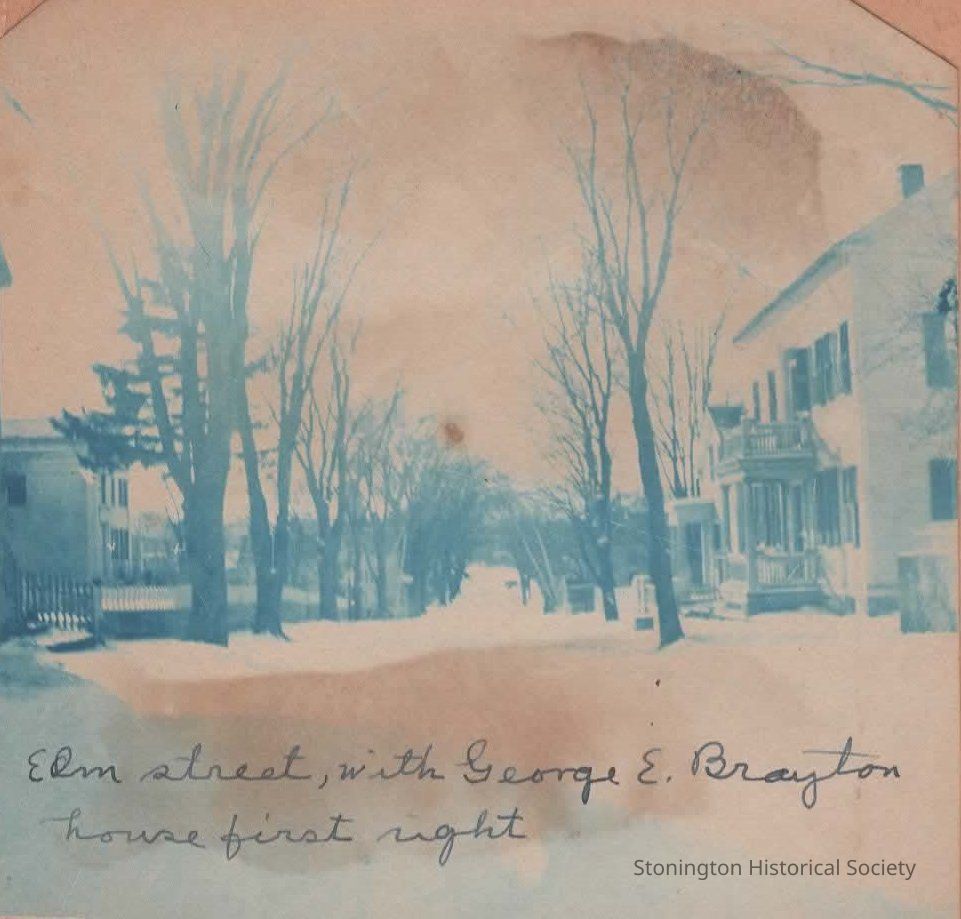 Elm street, with George E. Brayton
house first right
Stonington Historical Society